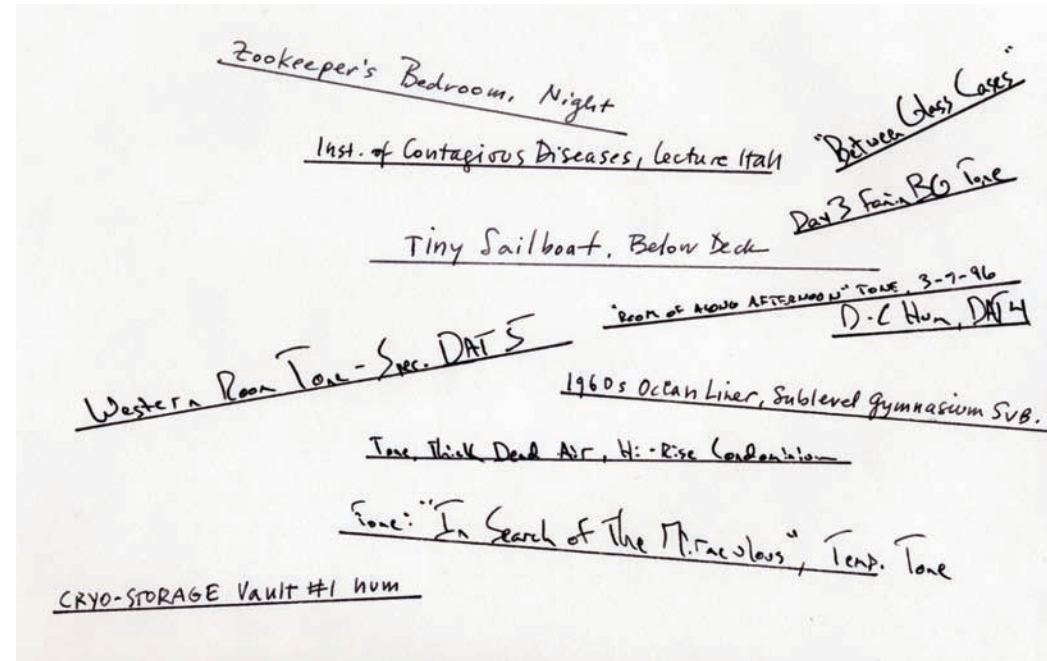 Zookeeper's Bedroom, Night
"Between Glass Cases"
Inst. of Contagious Diseases, Lecture Hall
Day 3 BG Tone
Tiny Sailboat, Below Deck
"ROOM OF ALONG AFTERNOON" TONE, 3-7-96
D-C Hum, DAT 4
Western Room Tone - Spec. DAT 5
1960s Ocean Liner, Sublevel Gymnasium SUB.
Tone, Thick Dead Air, Hi-Rise Condominium
Tone: "In Search of The Miraculous", Temp. Tone
CRYO-STORAGE Vault #1 hum